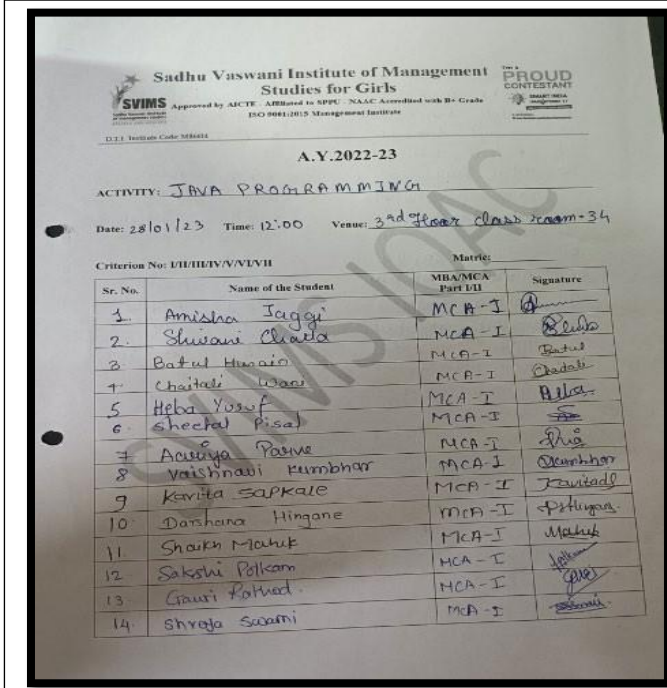 Sadhu Vaswani Institute of Management
Studies for Girls
SVIMS
Approved by AICTE - Affiliated to SPPU - NAAC Accredited with B+ Grade
ISO 9001:2015 Management Institute
PROUD
CONTESTANT
A.Y.2022-23
ACTIVITY: JAVA PROGRAMMING
Date: 28/01/23 Time: 12:00 Venue: 3rd floor class room-34
Criterion No: I/II/III/IV/V/VI/VII Matric:
Sr. No. Name of the Student MBA/MCA Part I/II Signature
1. Amisha Jaggi MCA-I
2. Shivani Chawla MCA-I
3 Batul Husain MCA-I Batul
4. Chaitali Wani MCA-I
5 Heba Yusuf MCA-I Heba
6. Sheetal Pisal MCA-I
7 Parve MCA-I
8 Vaishnavi Kumbhar MCA-I Vkumbhar
9 Kavita Sapkale MCA-I
10. Darshana Hingane MCA-I
11. Shaikh Mahek MCA-I Mahek
12 Sakshi Polkam MCA-I
13. Gauri Rathod. MCA-I
14. Shreya Swami MCA-I
SVIMS IQAC